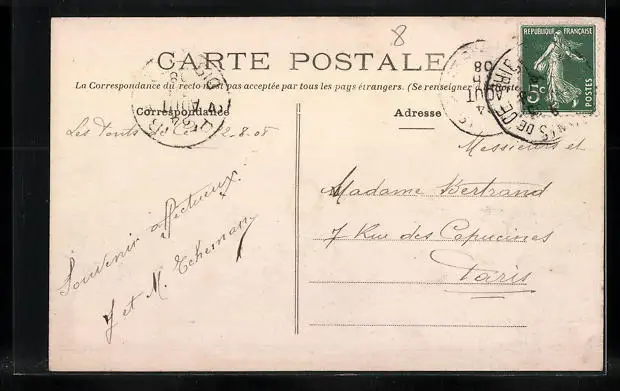 8
CARTE POSTALE
La Correspondance du recto n'est pas acceptée par tous les pays étrangers. (Se renseigner
Correspondance
Adresse
RÉPUBLIQUE FRANÇAISE
5c
AOUT
08
Les Ponts de Cé 2.8.08
Souvenir affectueux.
Messieurs et
Madame Bertrand
7 Rue des Capucines
Paris